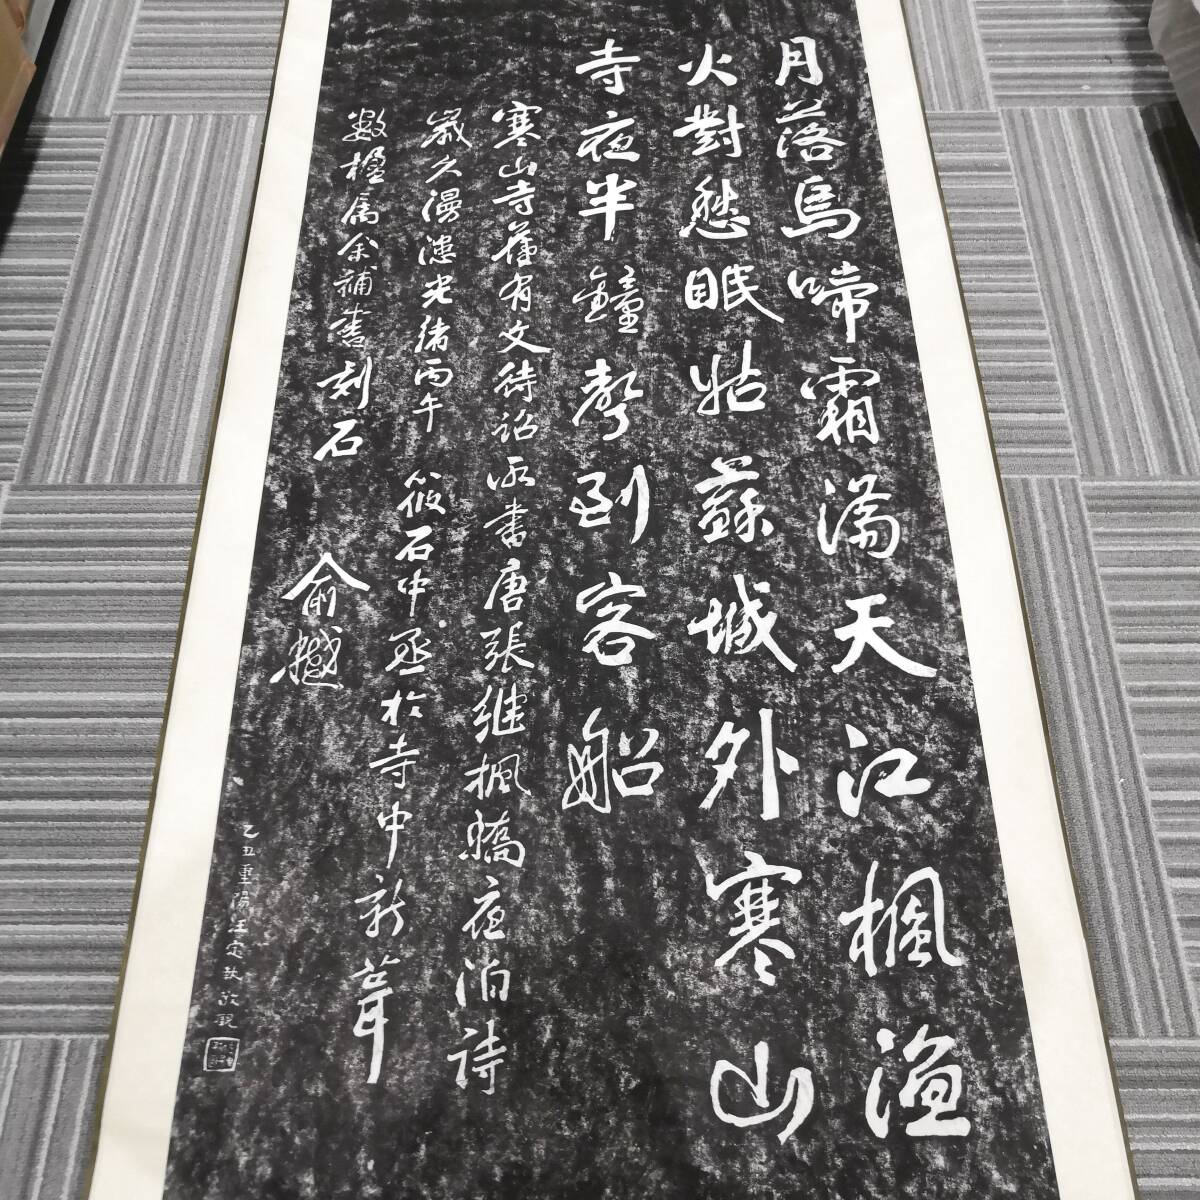 月落烏啼霜滿天江楓漁
火對愁眠姑蘇城外寒山
寺夜半鐘聲到客船
寒山寺舊有文待詔所書唐張继楓橋夜泊詩
歲久漫漶光緒丙午
筱石中丞於寺中新葺
數楹屬余補書刻石
俞樾
乙丑重陽汪